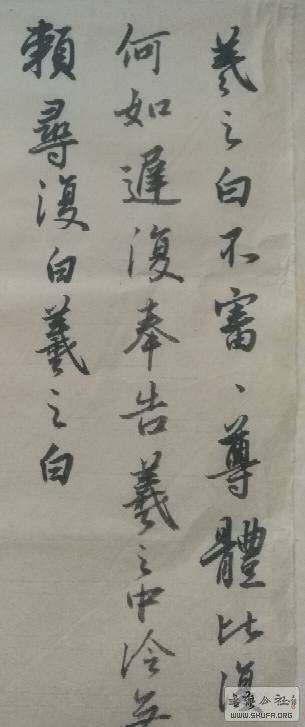 羲之白不審、尊體比復
何如遲復奉告羲之中冷無
賴尋復白羲之白
書法公社
WWW.SHUFA.ORG